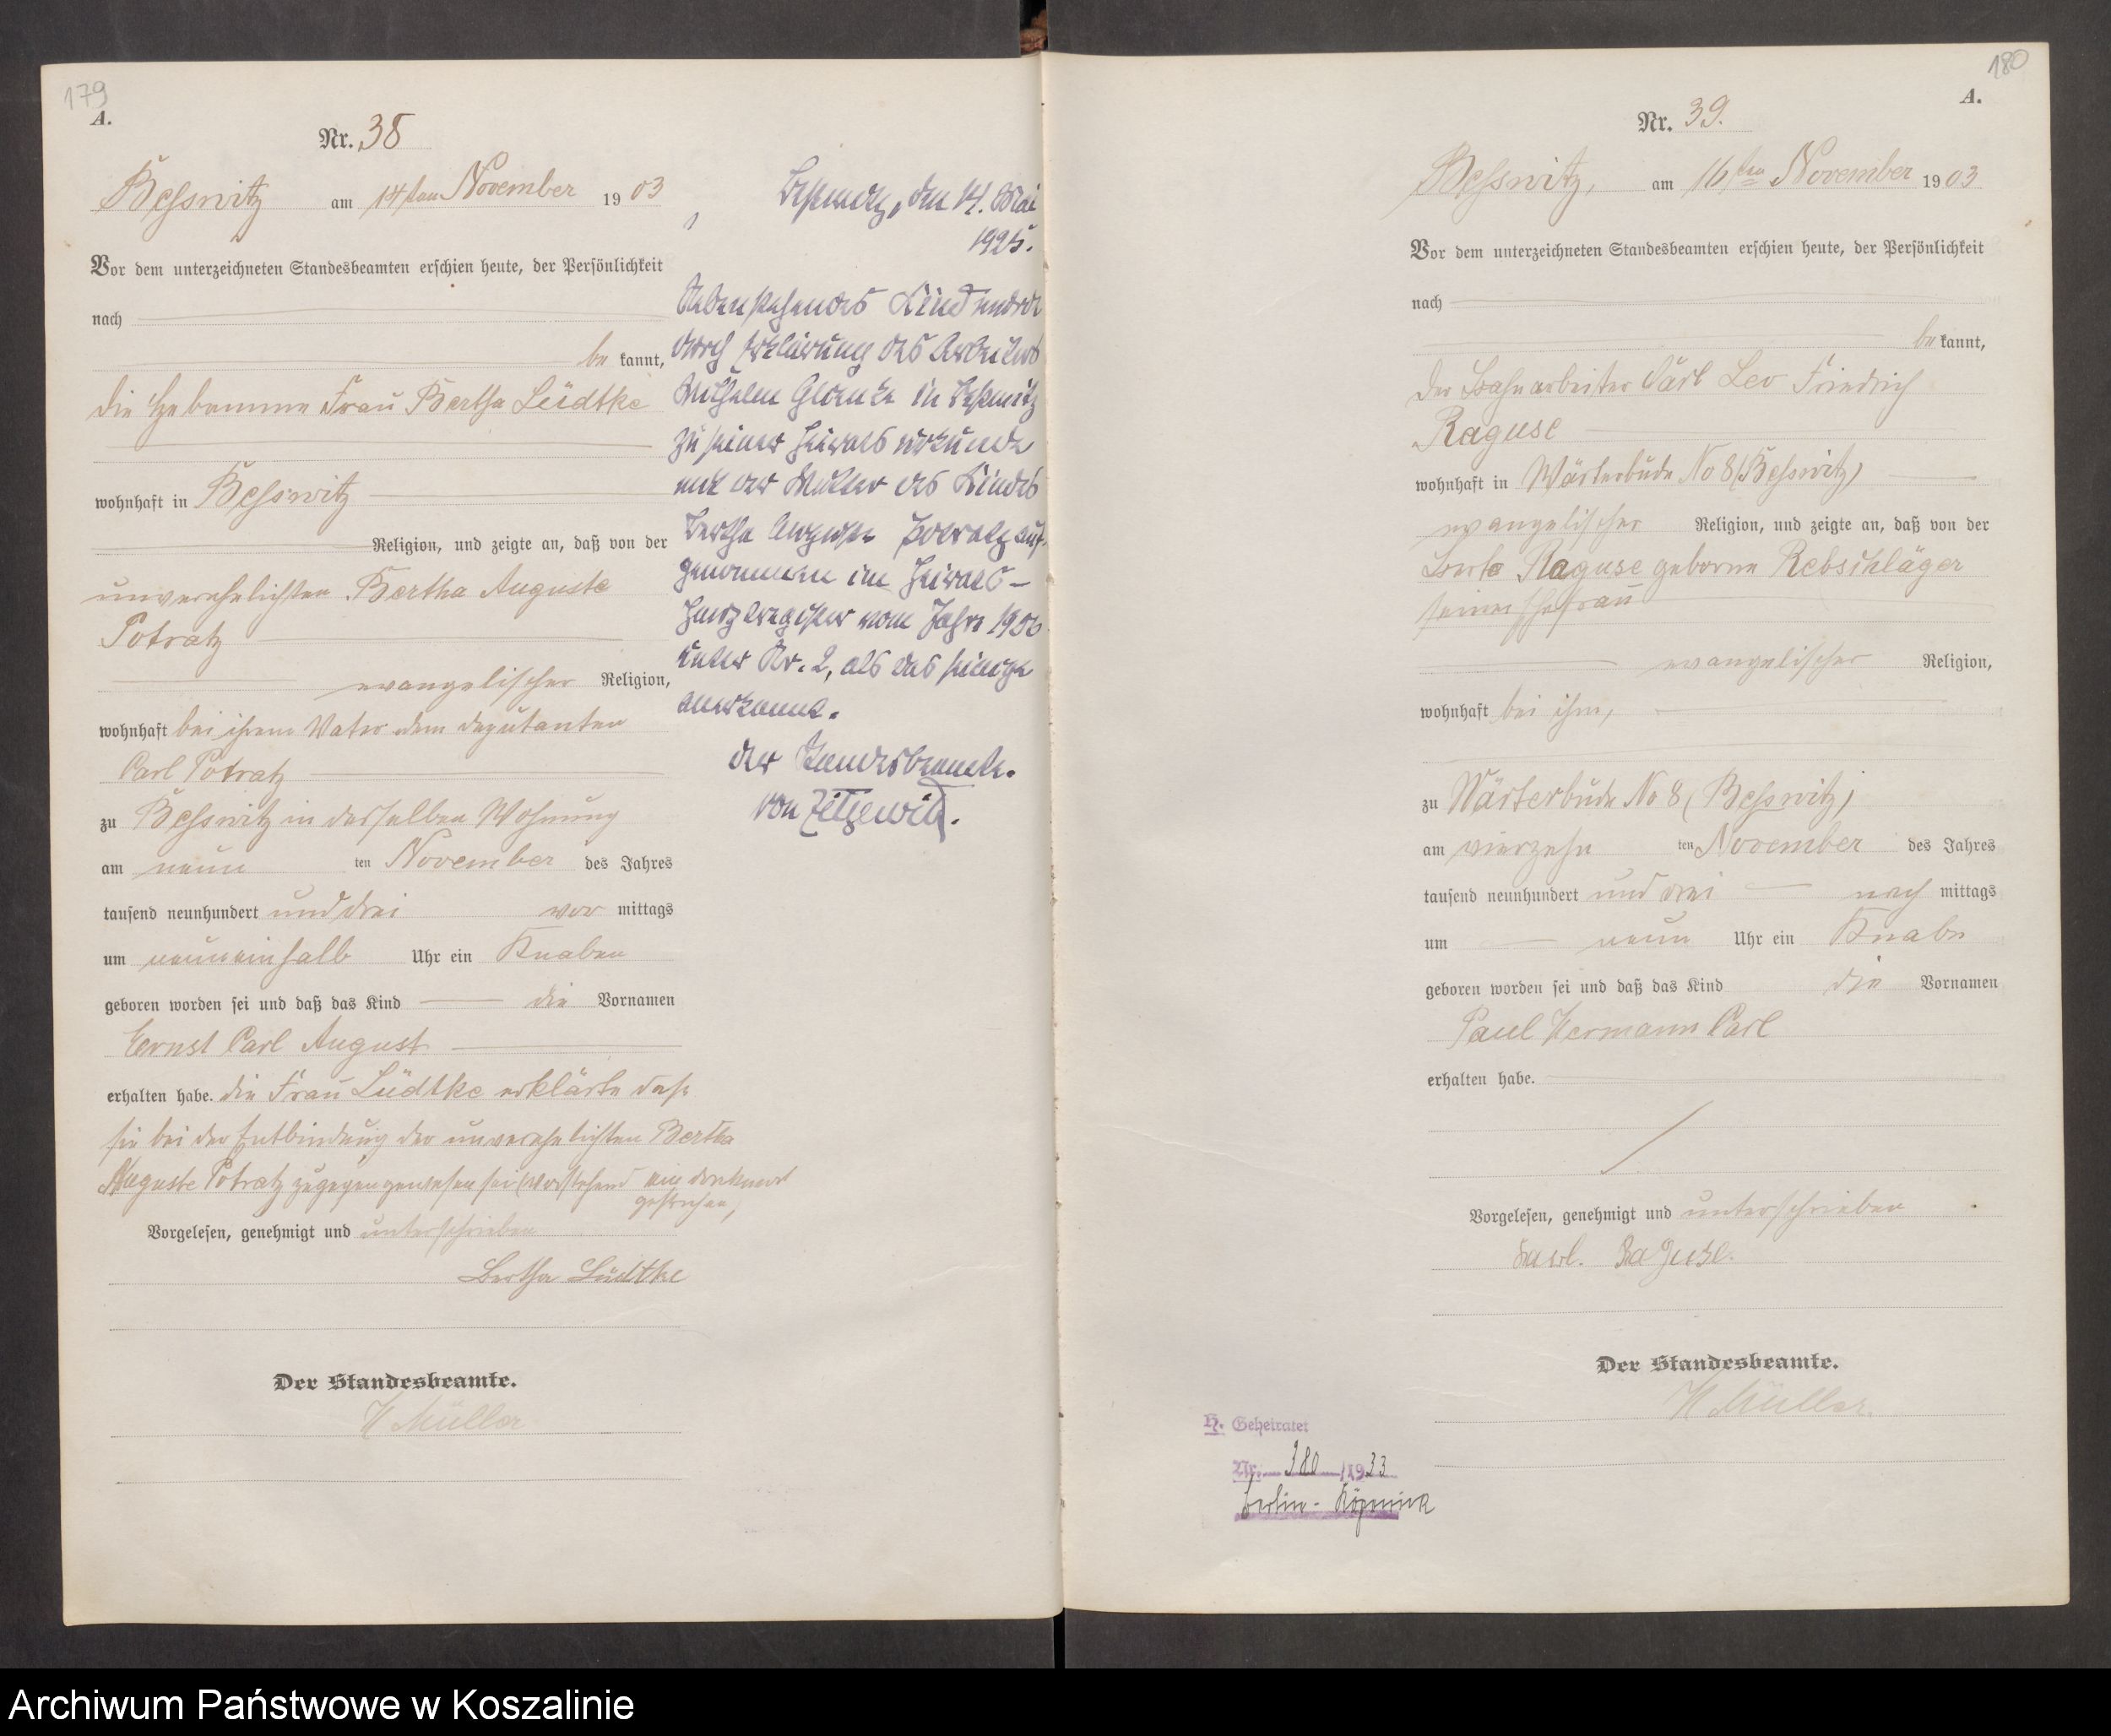 179
A.
Nr. 38
Besswitz am 14ten November 1903
Vor dem unterzeichneten Standesbeamten erschien heute, der Persönlichkeit
nach
be kannt,
die Hebamme Frau Bertha Lüdtke
wohnhaft in Besswitz
Religion, und zeigte an, daß von der
unverehelichten Bertha Auguste
Potratz
evangelischer Religion,
wohnhaft bei ihrem Vater dem Deputanten
Carl Potratz
zu Besswitz in derselben Wohnung
am neun ten November des Jahres
tausend neunhundert und drei vor mittags
um neuneinhalb Uhr ein Knaben
geboren worden sei und daß das Kind die Vornamen
Ernst Carl August
erhalten habe. die Frau Lüdtke erklärte dass
sie bei der Entbindung der unverehelichten Bertha
Auguste Potratz zugegen gewesen sei (vorstehend ein Druckwort
gestrichen)
Vorgelesen, genehmigt und unterschrieben
Bertha Lüdtke
Der Standesbeamte.
H Müller
Beßwitz, den 14. Mai
1925.
Nebenstehendes Kind wurde
durch Erklärung des Arbeiters
Wilhelm in Beßwitz
zu seiner Heiratsurkunde
mit der Mutter des Kindes
Bertha Auguste Potratz auf-
genommen im Heirats-
register vom Jahre
unter Nr. 2, als das seinige
anerkannt.
Der Standesbeamte.
von Zitzewitz.
180
A.
Nr. 39.
Besswitz, am 16ten November 1903
Vor dem unterzeichneten Standesbeamten erschien heute, der Persönlichkeit
nach
be kannt,
der Bahnarbeiter Carl Leo Friedrich
Raguse
wohnhaft in Wärterbude No 8 (Besswitz)
evangelischer Religion, und zeigte an, daß von der
Raguse geborne Rebschläger
seiner Ehefrau
evangelischer Religion,
wohnhaft bei ihm,
zu Wärterbude No 8 (Besswitz)
am vierzehn ten November des Jahres
tausend neunhundert und drei nach mittags
um neun Uhr ein Knabe
geboren worden sei und daß das Kind die Vornamen
Paul Hermann Carl
erhalten habe.
Vorgelesen, genehmigt und unterschrieben
Karl. Raguse.
Der Standesbeamte.
H Müller.
H. Geheiratet
Nr. 380 /1933
Berlin-Köpenick
Archiwum Państwowe w Koszalinie